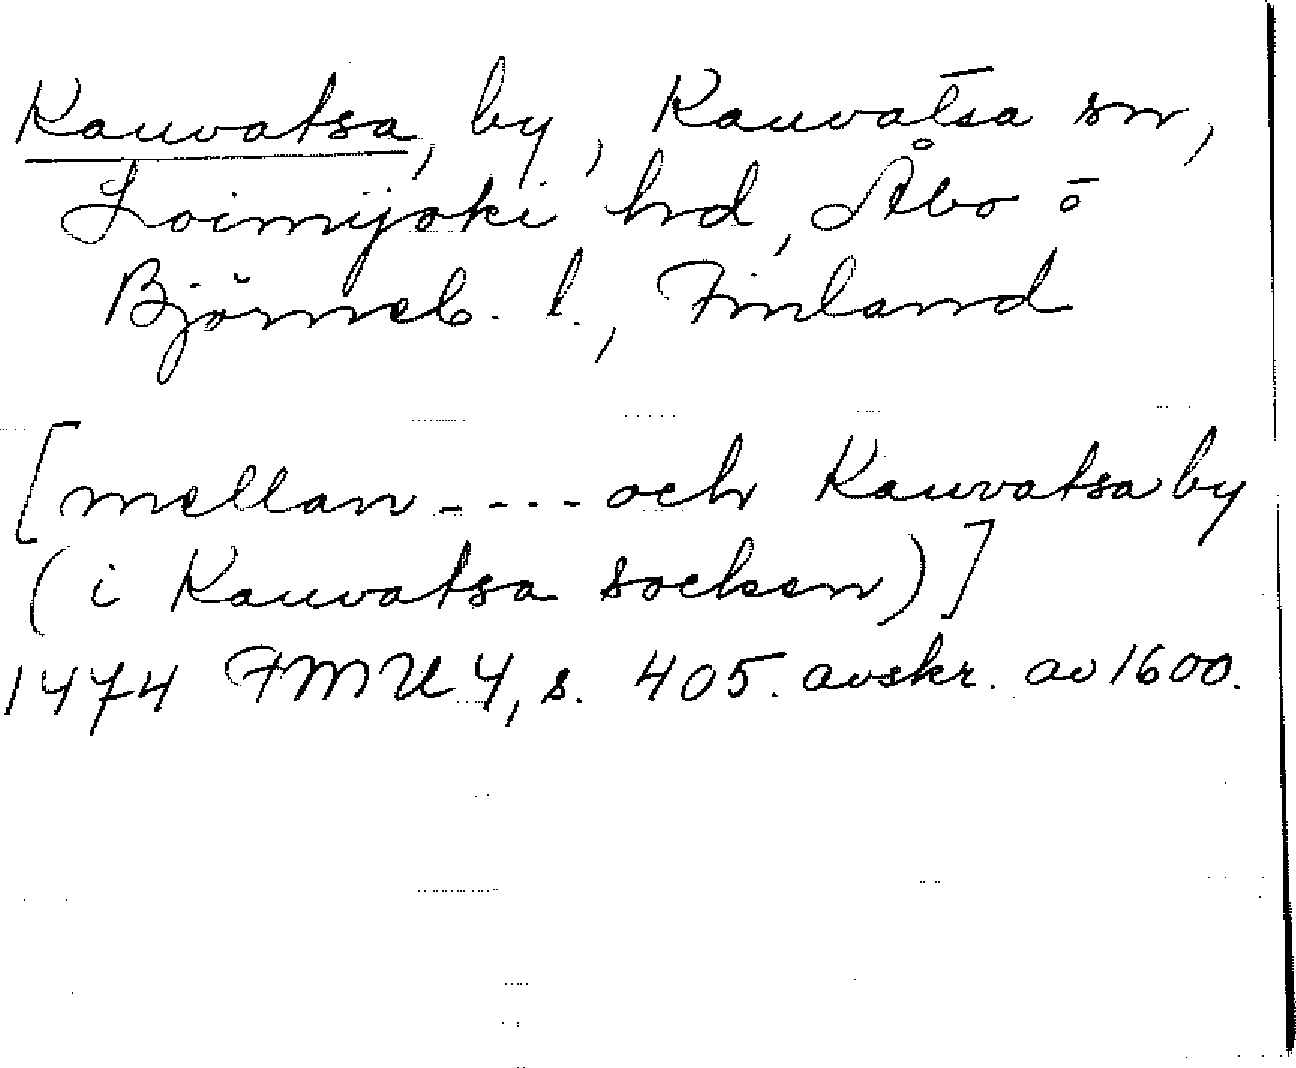 Kauvatsa, by, Kauvatsa sn,
Loimijoki hd, Åbo o
Björneb. l., Finland
[mellan ---- och Kauvatsa by
(i Kauvatsa socken)]
1474 FMU 4, s. 405. avskr. av 1600.